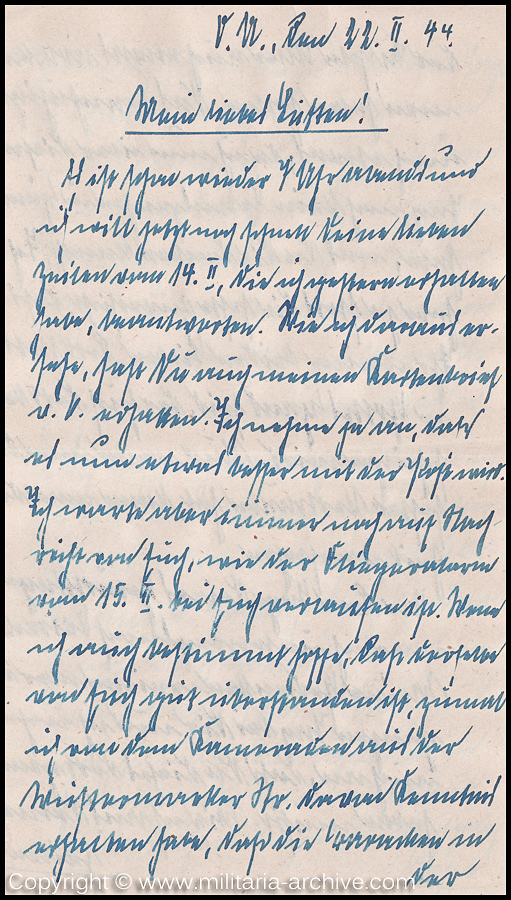 O. U., den 22. II. 44
Mein liebes
Es ist schon wieder 7 Uhr abends und
ich will jetzt noch schnell Deine lieben
Zeilen vom 14. II., die ich gestern erhalten
habe, beantworten. Wie ich daraus er-
sehe, hast Du auch meinen Kartenbrief
erhalten. Ich nehme ja an, dass
es nun etwas besser mit der Post wird.
Ich warte aber immer noch auf Nach-
richt von Euch, wie der Fliegeralarm
vom 15. II. bei Euch verlaufen ist. Wenn
ich auch bestimmt hoffe, dass derselbe
von Euch gut überstanden ist, zumal
ich von dem Kameraden aus der
Wustermarker Str. davon Kenntnis
erhalten habe, dass die Baracken in
der
Copyright © www.militaria-archive.com